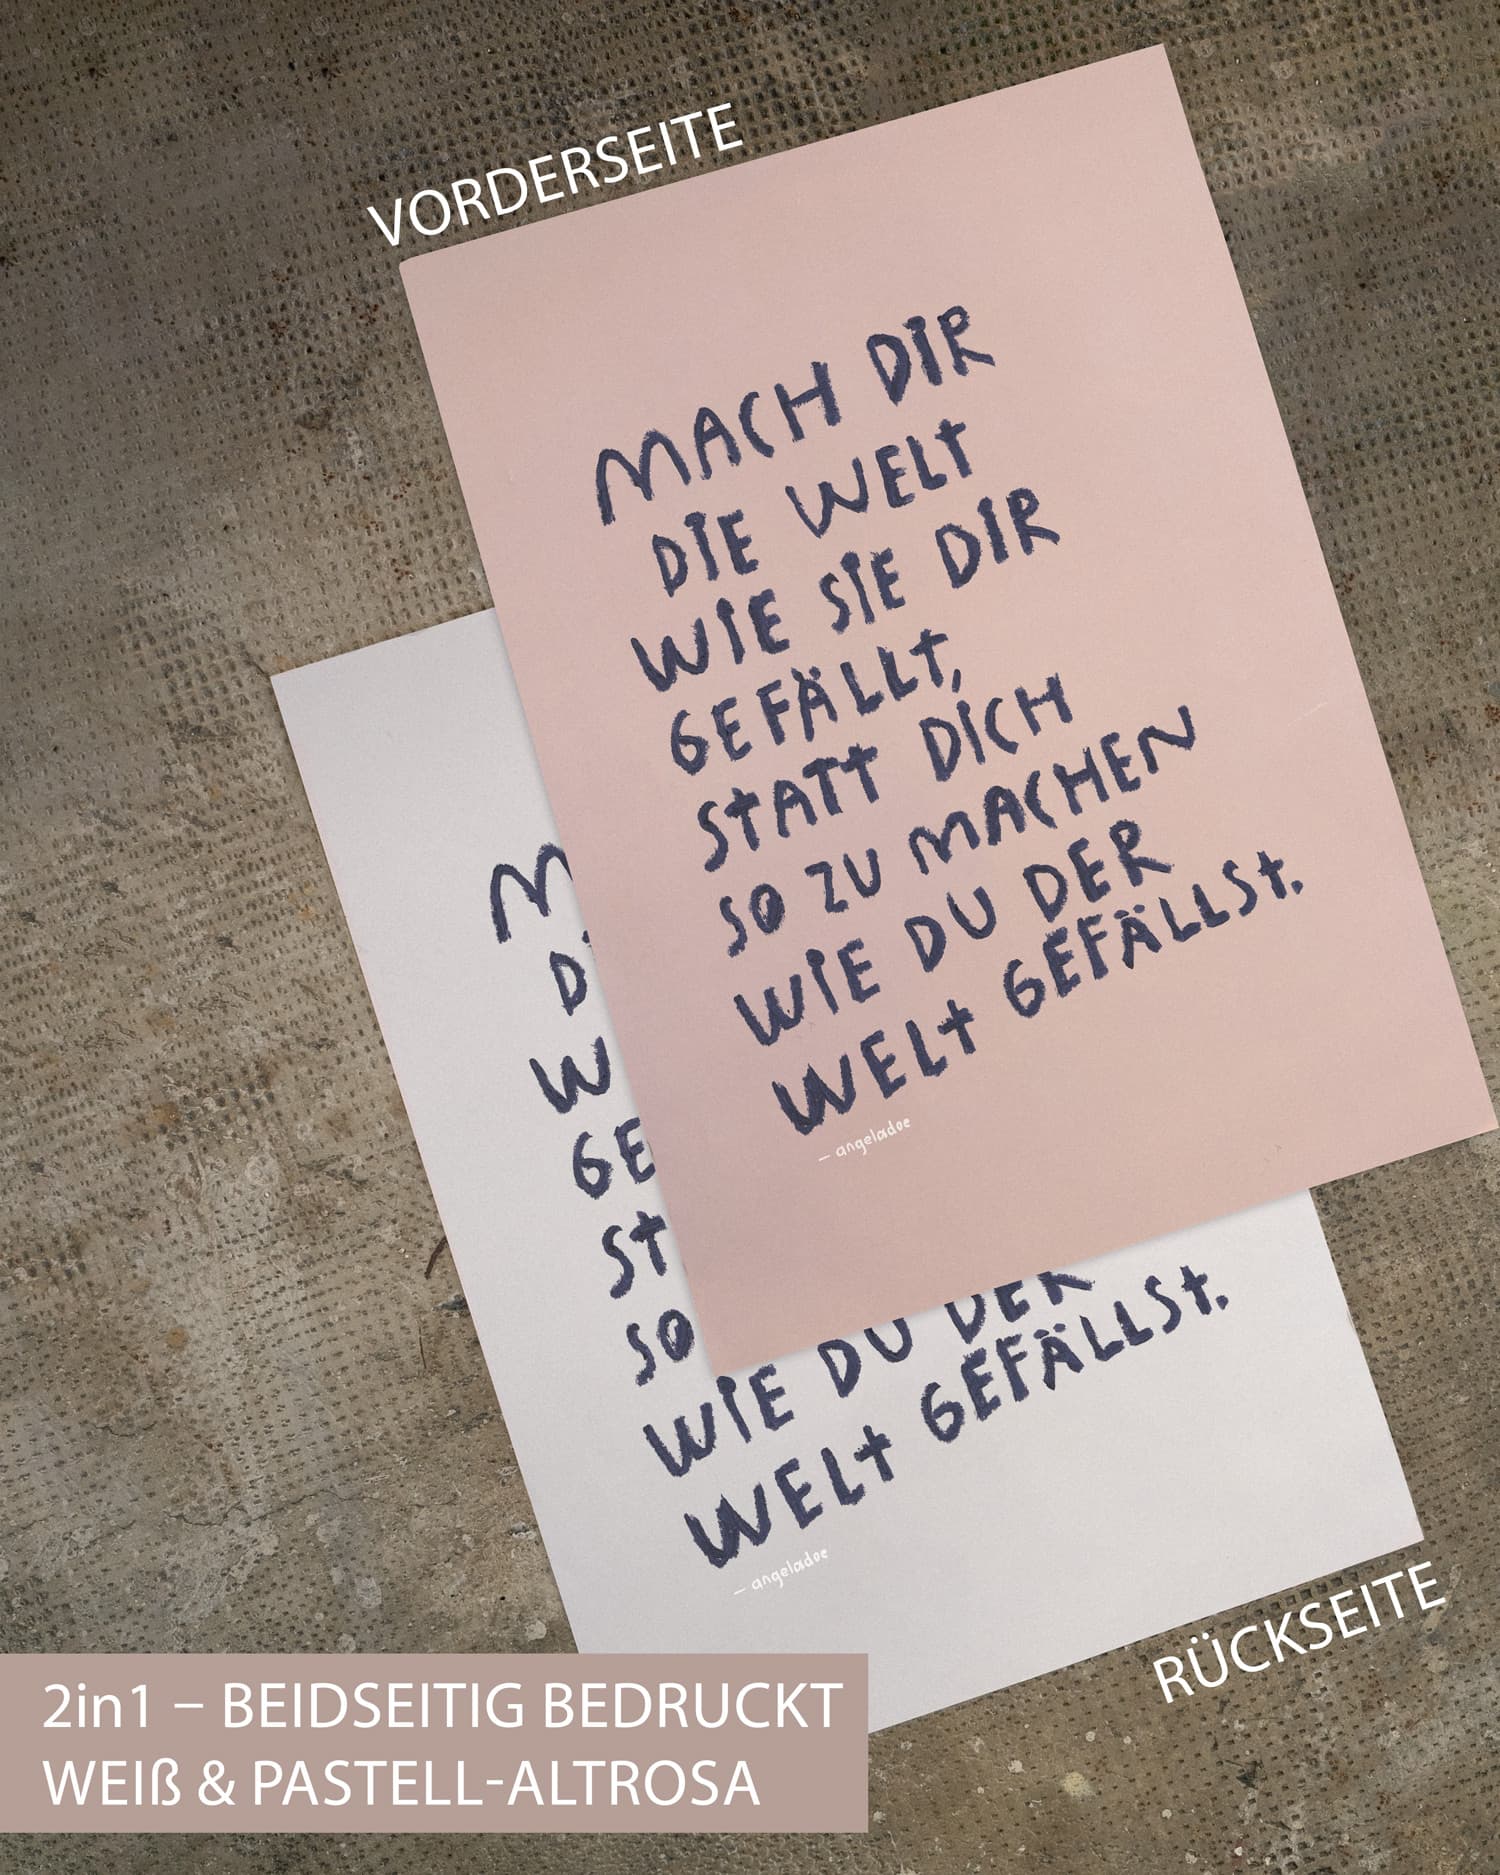 VORDERSEITE
MACH DIR
DIE WELT
WIE SIE DIR
GEFÄLLT,
STATT DICH
SO ZU MACHEN
WIE DU DER
WELT GEFÄLLST.
– angeladoe
M
D
W
GE
ST
SO
WIE DU DER
WELT GEFÄLLST.
– angeladoe
RÜCKSEITE
2in1 – BEIDSEITIG BEDRUCKT
WEIß & PASTELL-ALTROSA